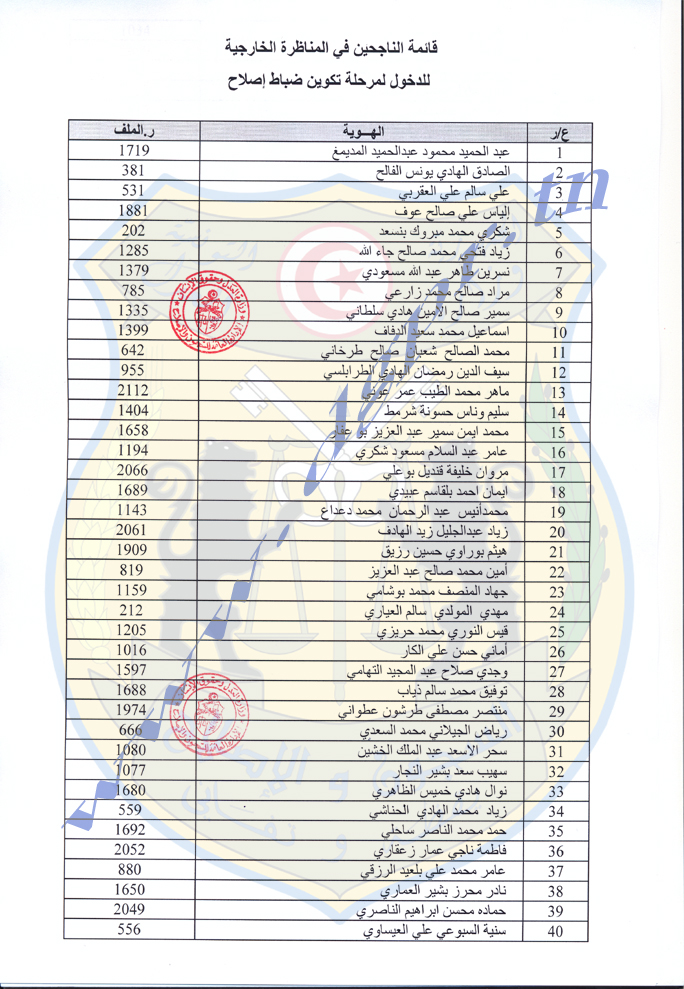 قائمة الناجحين في المناظرة الخارجية
للدخول لمرحلة تكوين ضباط إصلاح
ع/ر الهـــوية ر.الملف
1 عبد الحميد محمود عبدالحميد المديمغ 1719
2 الصادق الهادي يونس الفالح 381
3 علي سالم علي العقربي 531
4 إلياس علي صالح عوف 1881
5 شكري محمد مبروك بنسعد 202
6 زياد فتحي محمد صالح جاء الله 1285
7 نسرين طاهر عبد الله مسعودي 1379
8 مراد صالح محمد زارعي 785
9 سمير صالح الامين هادي سلطاني 1335
10 اسماعيل محمد سعيد الدفاف 1399
11 محمد الصالح شعبان صالح طرخاني 642
12 سيف الدين رمضان الهادي الطرابلسي 955
13 ماهر محمد الطيب عمر عوني 2112
14 سليم وناس حسونة شرمط 1404
15 محمد ايمن سمير عبد العزيز بو عفار 1658
16 عامر عبد السلام مسعود شكري 1194
17 مروان خليفة قنديل بوعلي 2066
18 ايمان احمد بلقاسم عبيدي 1689
19 محمدأنيس عبد الرحمان محمد دعداع 1143
20 زياد عبدالجليل زيد الهادف 2061
21 هيثم بوراوي حسين رزيق 1909
22 أمين محمد صالح عبد العزيز 819
23 جهاد المنصف محمد بوشامي 1159
24 مهدي المولدي سالم العياري 212
25 قيس النوري محمد حريزي 1205
26 أماني حسن علي الكار 1016
27 وجدي صلاح عبد المجيد التهامي 1597
28 توفيق محمد سالم ذياب 1688
29 منتصر مصطفى طرشون عطواني 1974
30 رياض الجيلاني محمد السعدي 666
31 سحر الاسعد عبد الملك الخشين 1080
32 سهيب سعد بشير النجار 1077
33 نوال هادي خميس الظاهري 1680
34 زياد محمد الهادي الحناشي 559
35 حمد محمد الناصر ساحلي 1692
36 فاطمة ناجي عمار زعقاري 2052
37 عامر محمد علي بلعيد الرزقي 880
38 نادر محرز بشير العماري 1650
39 حماده محسن ابراهيم الناصري 2049
40 سنية السبوعي علي العيساوي 556